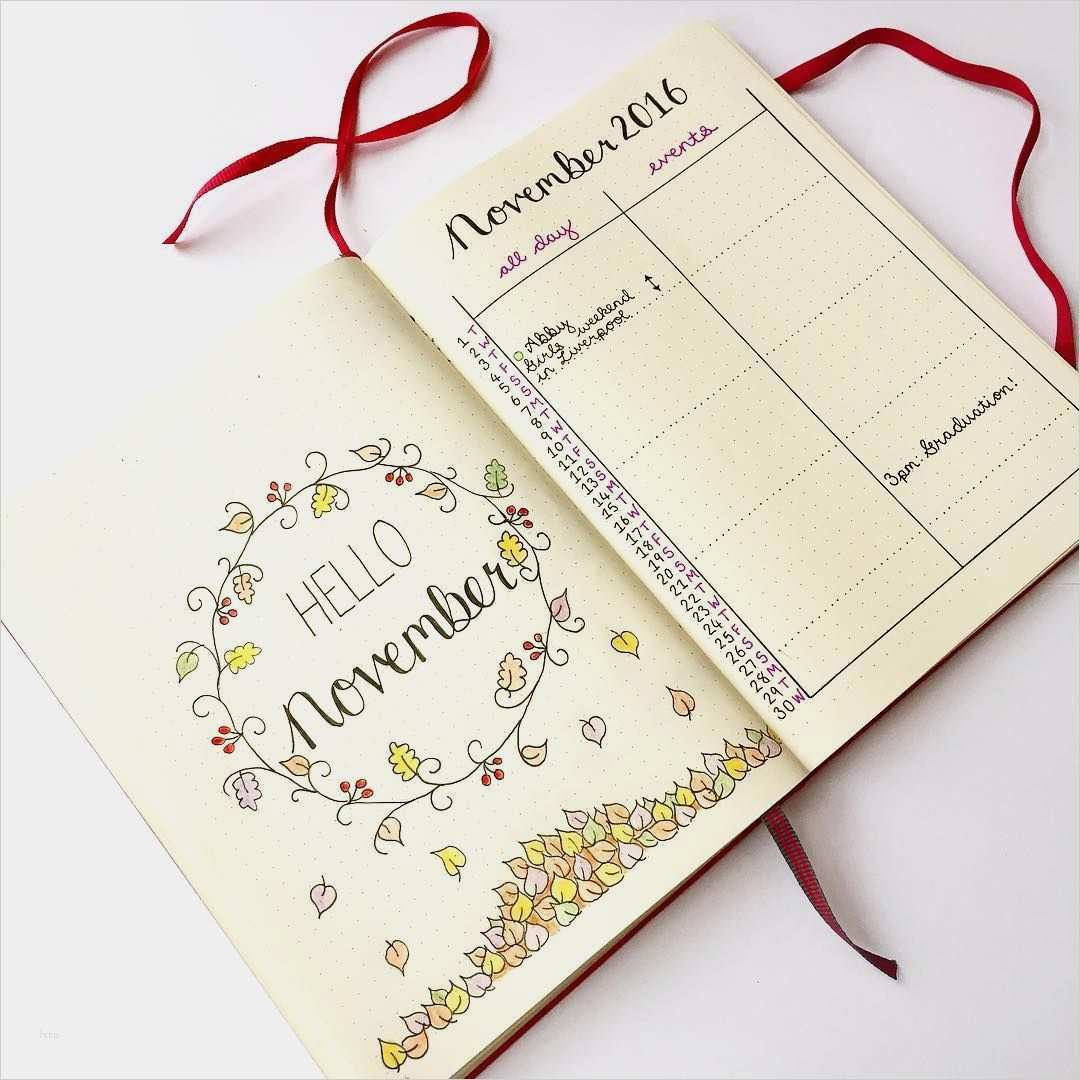 HELLO
November
November 2016
all day
events
1 T
2 W
3 T
4 F
5 S
6 S
7 M
8 T
9 W
10 T
11 F
12 S
13 S
14 M
15 T
16 W
17 T
18 F
19 S
20 S
21 M
22 T
23 W
24 T
25 F
26 S
27 S
28 M
29 T
30 W
Abby
Girls weekend
in Liverpool
3pm: Graduation!